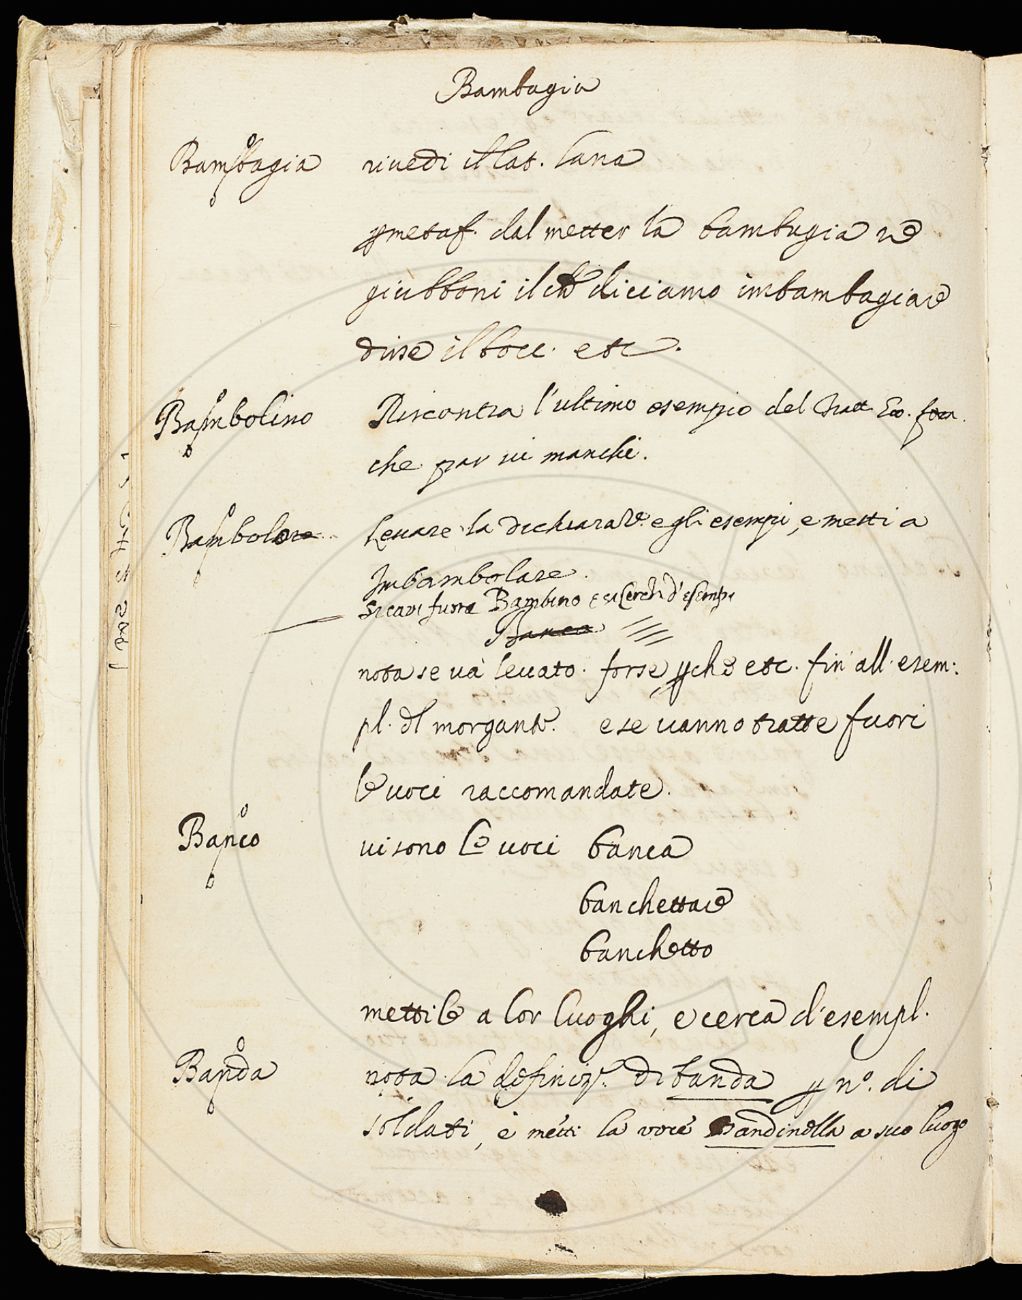 Bambagia
Bambagia rivedi il lat. lana
p metaf. dal metter la bambagia ne
giubboni il che diciamo imbambagiare
disse il bocc. etc.
Bambolino Riscontra l'ultimo esempio del Tratt.
che par vi manchi.
Bambolo Levare la dichiaraze e gli esempi, e metti a
Imbambolare.
Si cavi fuora Bambino e si cerchi d'esempi
Banca
nota se và levato. forse pche etc. fin all'esem:
pl. dl morgante. e se vanno tratte fuori
le voci raccomandate.
Banco vi sono le voci banca
banchettare
banchetto
mettile a lor luoghi, e cerca d'esempl.
Banda nota la definiz. di banda p no. di
soldati, e metti la voce Bandinella a suo luogo